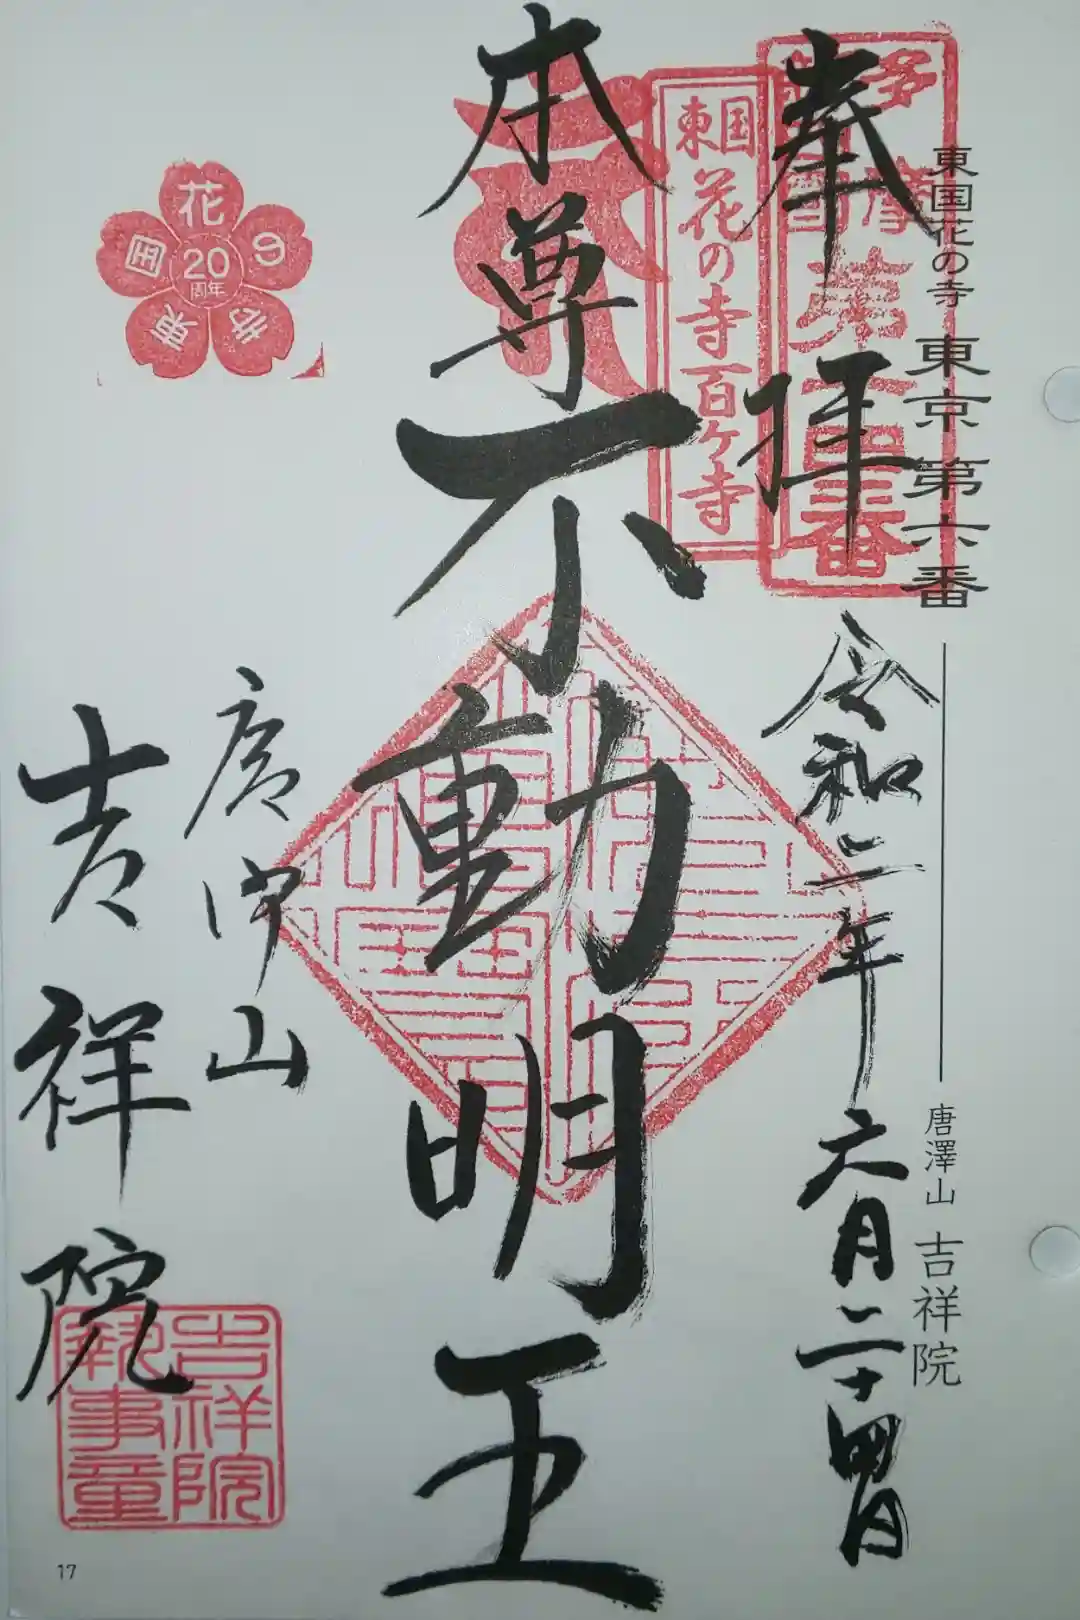 東国花の寺 東京第六番
唐澤山 吉祥院
奉拝
令和二年六月二十四日
東国花の寺百ヶ寺
本尊不動明王
花の寺
東国
20
周年
唐沢山
吉祥院
吉祥院
執事章
17